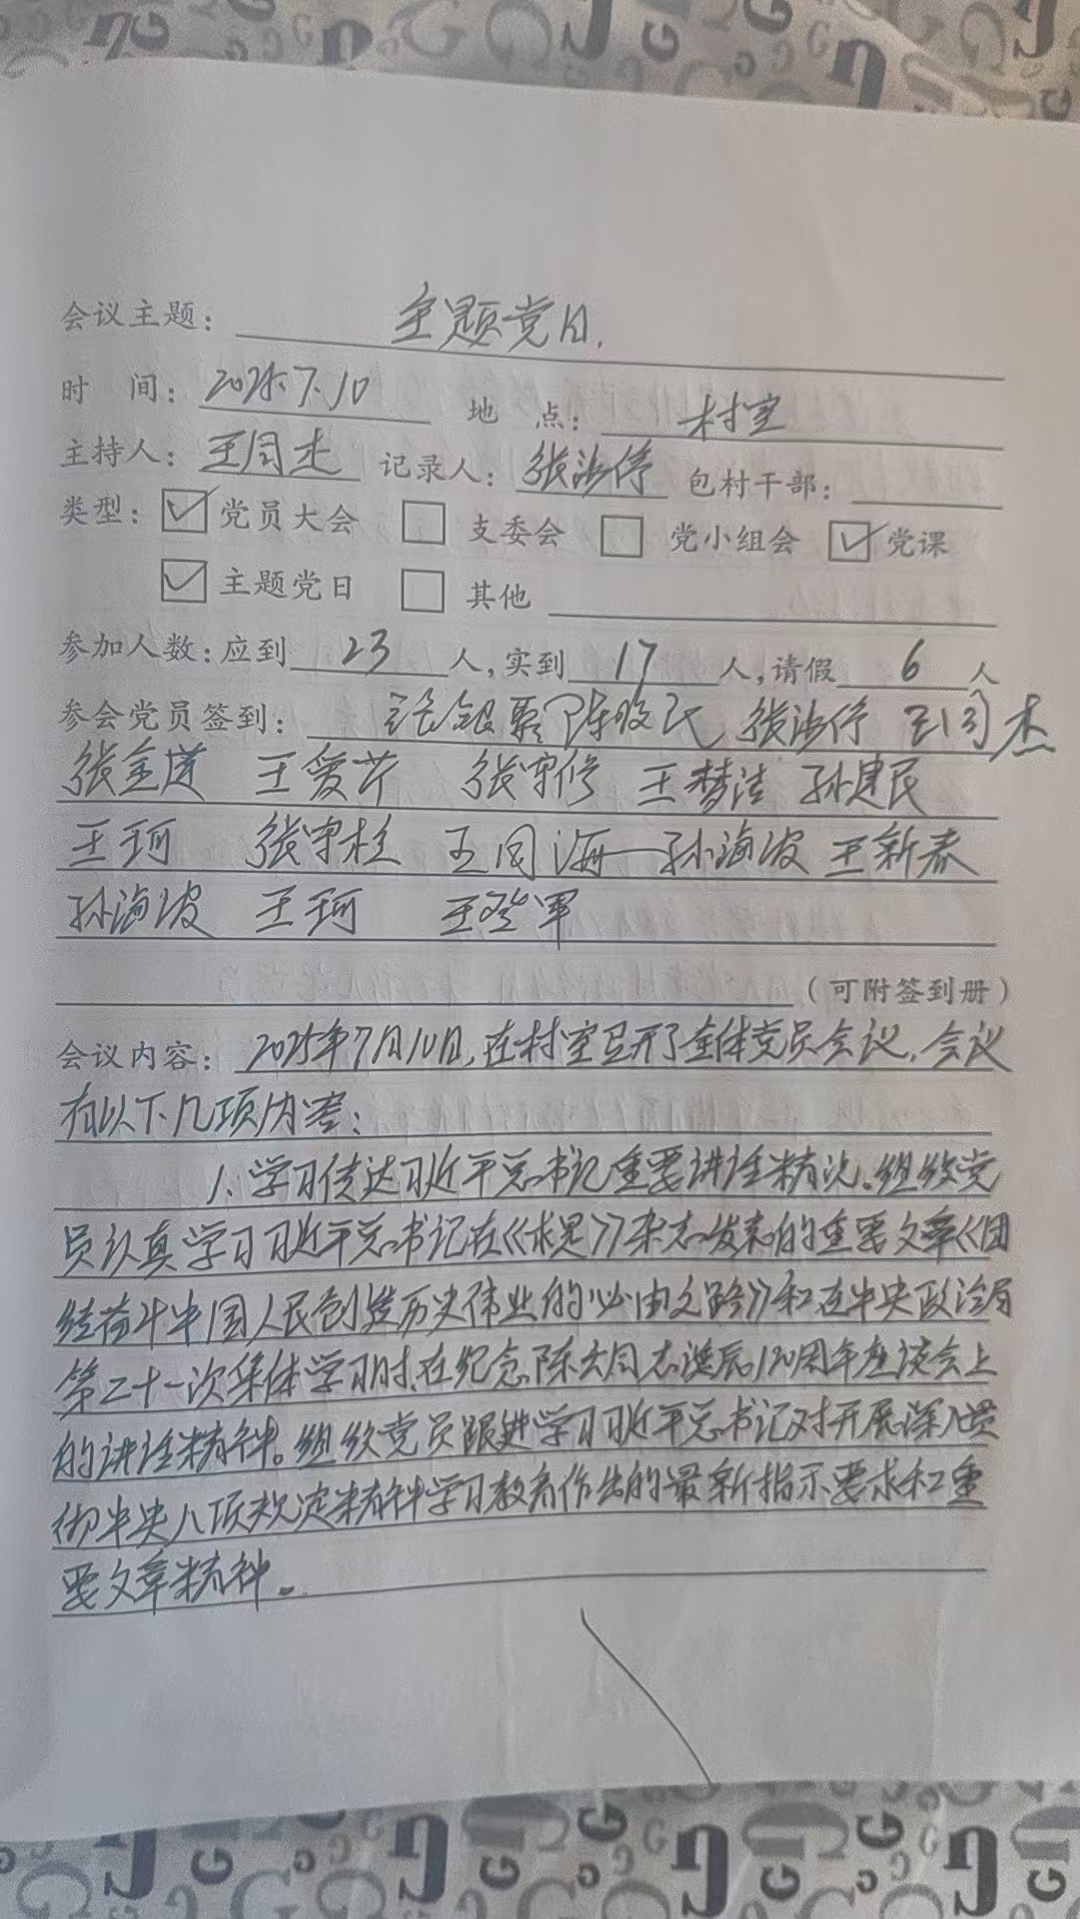 会议主题：主题党日.
时 间：2025.7.10 地 点：村室
主持人：王同杰 记录人：张法停 包村干部：
类型：☑党员大会 □支委会 □党小组会 ☑党课
☑主题党日 □其他
参加人数：应到23人，实到17人，请假6人
参会党员签到：陈 民 张法停 王同杰
张金 王爱芹 张守修 王梦洁 孙建民
王珂 张守柱 王同海 孙海波 王新春
孙海波 王珂 王登军
（可附签到册）
会议内容：2025年7月10日，在村室召开了全体党员会议，会议
有以下几项内容：
1、学习传达习近平总书记重要讲话精神。组织党
员认真学习习近平总书记在《求是》杂志发表的重要文章《团
结奋斗中国人民创造历史伟业的必由之路》和在中央政治局
第二十一次集体学习时、在纪念陈云同志诞辰120周年座谈会上
的讲话精神。组织党员跟进学习习近平总书记对开展深入贯
彻中央八项规定精神学习教育作出的最新指示要求和重
要文章精神。